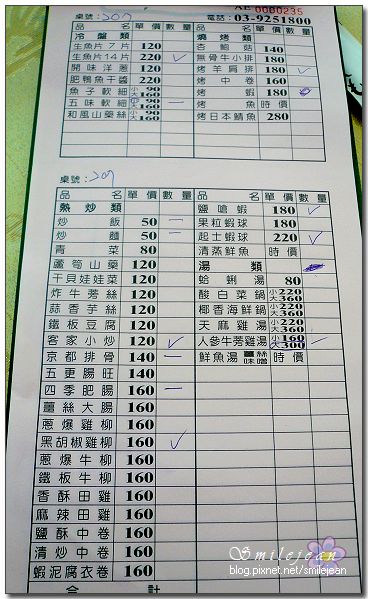 AE 00B0235
桌號：207 電話：03-9251800
冷盤類 單價 數量
生魚片7片 120
生魚片14片 220 ✓
開味洋蔥 120
肥鴨魚干醬 220
魚子軟細 小90 大160
五味軟細 小90 大160 一
和風山藥絲 小 大160
燒烤類 單價 數量
杏鮑菇 140
無骨牛小排 180
烤羊肩排 180 ✓
烤中卷 160
烤蝦 180
烤魚 時價
烤日本鯖魚 280
桌號：207
品名 單價 數量
熱炒類
炒飯 50 一
炒麵 50 一
青菜 80
蘆筍山藥 120
干貝娃娃菜 120
炸牛蒡絲 120
蒜香芋絲 120
鐵板豆腐 120
客家小炒 120 ✓
京都排骨 140 一
五更腸旺 140
四季肥腸 160 一
薑絲大腸 160
蔥爆雞柳 160
黑胡椒雞柳 160 ✓
蔥爆牛柳 160
鐵板牛柳 160
香酥田雞 160
麻辣田雞 160
鹽酥中卷 160
清炒中卷 160
蝦泥腐衣卷 160
合計
品名 單價 數量
鹽嗆蝦 180 ✓
果粒蝦球 180
起士蝦球 220 ✓
清蒸鮮魚 時價
湯類
蛤蜊湯 80
酸白菜鍋 小220 大360
椰香海鮮鍋 小220 大360
天麻雞湯 小220 大360
人參牛蒡雞湯 小160 大300 一
鮮魚湯 薑絲 味噌 時價
Smilejean
blog.pixnet.net/smilejean